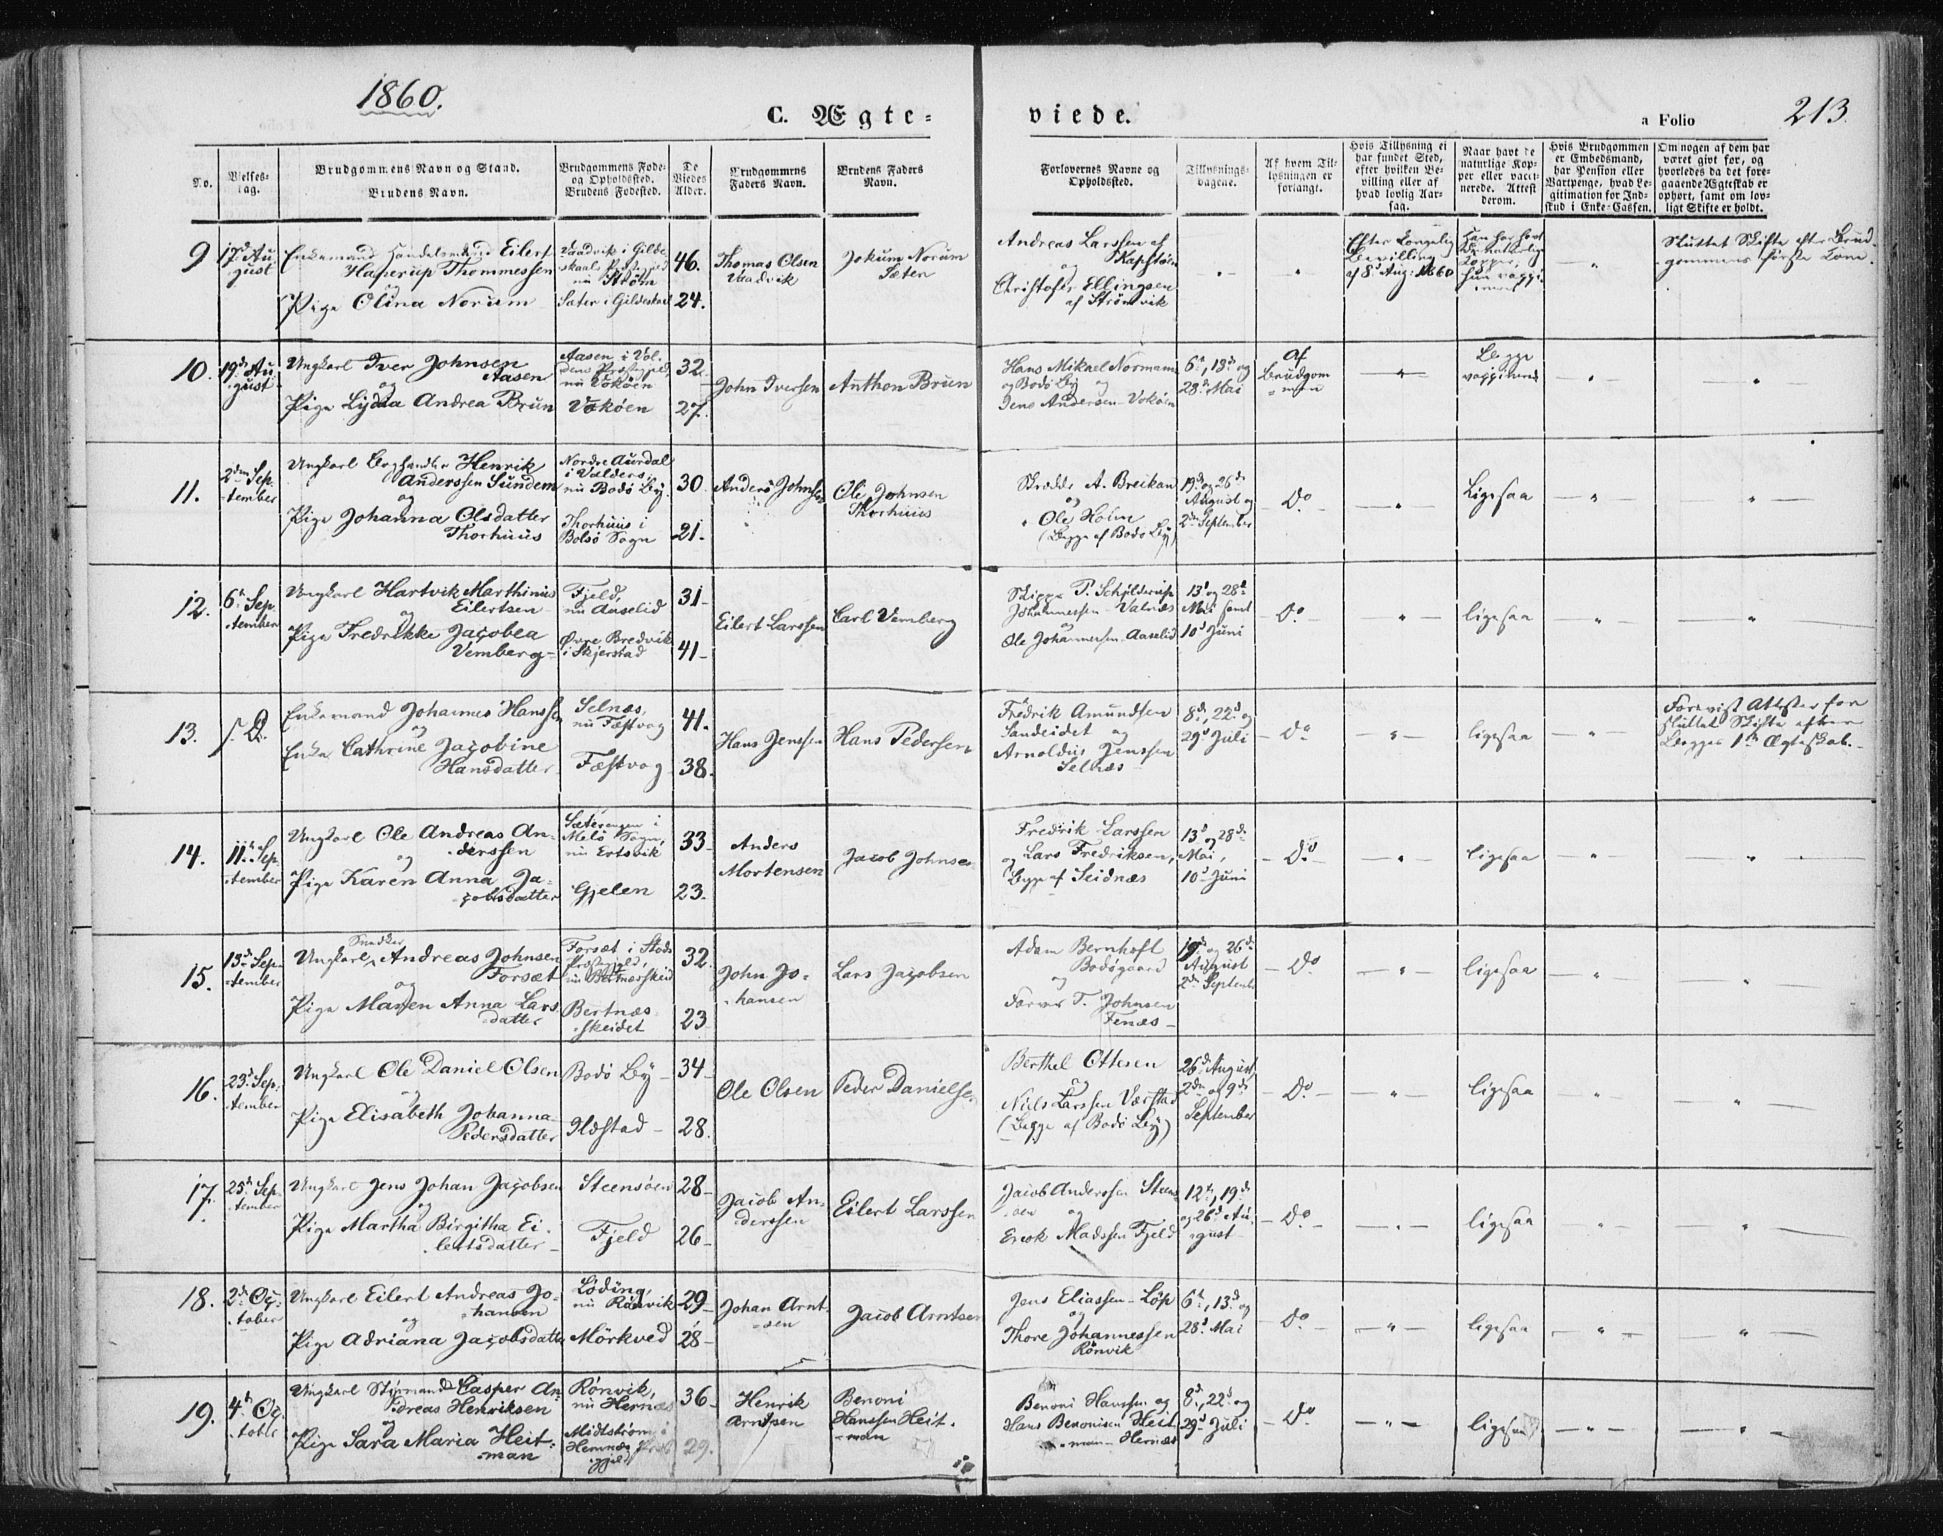 1860.
C. Ægte=
viede.
a Folio 213.
No.
Vielses-
dag.
Brudgommens Navn og Stand.
Brudens Navn.
Brudgommens Føde-
og Opholdssted.
Brudens Fødested.
De
Viedes
Alder.
Brudgommens
Faders Navn.
Brudens Faders
Navn.
Forlovernes Navne og
Opholdssted.
Tillysnings-
dagene.
Af hvem Til-
lysningen er
forlangt.
Hvis Tillysning ei
har fundet Sted,
efter hvilken Be-
villing eller af
hvad lovlig Aar-
sag.
Naar havt de
naturlige Kop-
per eller vacci-
nerede. Attest
derom.
Hvis Brudgommen
er Embedsmand,
har Pension eller
Vartpenge, hvad Le-
gitimation for Ind-
skud i Enke-Cassen.
Om nogen af dem har
været givt før, og
hvorledes da det fore-
gaaende Ægteskab er
ophørt, samt om lov-
ligt Skifte er holdt.
9
17d Au-
gust
Enkemand Handelsmand Eilert
Thommessen
og
Pige Olina Norum
Vaadvik i Gilde-
skaals Præstegjed
nu Strøm
Sater i Gildeskaal
46.
24.
Thomas Olsen
Vaadvik
Jokum Norum
Sater
Andreas Larssen af
og
Christofer Ellingsen
af Strømvik
Efter Kongelig
Bevilling
af 8d Aug: 1860
Han har havt
de naturlige
Kopper,
hun vacci-
neret
Sluttet Skifte efter Brud-
gommens første Kone.
10.
19d Au-
gust
Ungkarl Iver Johnsen
Aasen
og
Pige Lydia Andrea Brun
Aasen i Vol-
dens Præstegjed,
nu Vokøen
Vokøen
32.
27.
John Iversen
Anthon Brun
Hans Mikael Normann
og Bodø By og
Jens Andersen Vokøen
6te, 13de og
28de Mai
Af
Brudgom
men
Begge
vaccinered
11.
2den Sep-
tember
Ungkarl Henrik
Anderssen Sundem
og
Pige Johanna Olsdatter
Thorhuus
Nordre Aurdal
i Valders,
nu Bodø By.
Thorhuus i
Bolsø Sogn
30
21.
Anders Johnsen
Ole Johnsen
Thorhuus
A. Breikan
og
Ole Holm
(Begge af Bodø By)
19de og 26de
August og
2den September
Do
Ligesaa
12.
6te Sep-
tember
Ungkarl Hartvik Marthinus
Eilertsen
og
Pige Fredrikke Jacobea
Vemberg
Fjeld,
nu Aaselid
Øvre Bredvik
i Skjerstad
31
41
Eilert Larssen
Carl Vemberg
P. Schjelderup
Johannessen Valnæs
og
Ole Johannessen Aaselid
13d og 28d
Mai samt
10d Juni
Do
ligesaa
13.
Enkemand Johannes Hanssen
og
Enke Cathrine Jacobine
Hansdatter
Selnæs,
nu Fæstvog
Fæstvog
41.
38.
Hans Jenssen
Hans Pedersen
Fredrik Amundsen
Sandeidet og
Arnoldus Jenssen
Selnæs
8de, 22d og
29d Juli
Do
ligesaa
Forevist Attester for
sluttet Skifte efter
Begges 1ste Ægteskab.
14.
11te Sep-
tember
Ungkarl Ole Andreas An-
derssen
og
Pige Karen Anna Ja-
cobsdatter
Sæterengen i
Melø Sogn,
nu Ertsvik
Gjelen
33
23.
Anders
Mortensen
Jacob Johnsen
Fredrik Larssen
og Lars Fredriksen,
Begge af Seidnæs
13d og 28de
Mai,
10d Juni
Do
ligesaa
15.
13d Sep-
tember
Snedker
Ungkarl Andreas Johnsen
Forsæt
og
Pige Maren Anna Lars-
datter
Forsæt i Stods
Præstegield,
nu Bertnæsskeid
Bertnæs-
skeidet
32.
23
John Jo-
hansen
Lars Jacobsen
Adam Bernhoft
Bodøgaard
og
T. Johnsen
Fenæs
19de og 26de
August
2den September
Do
ligesaa
16.
23d Sep-
tember
Ungkarl Ole Daniel Olsen
og
Pige Elisabeth Johanna
Pedersdatter
Bodø By
Ilstad
34
28.
Ole Olsen
Peder Danielsen
Berthel Ottesen
og
Niels Larssen Værstad
(Begge af Bodø By)
26de August,
2den og 9de
September
Do
ligesaa
17.
25de Sep-
tember
Ungkarl Jens Johan Jacobsen
og
Pige Martha Birgitha Ei-
lertsdatter
Steensøen
Fjeld
28
26
Jacob An-
derssen
Eilert Larssen
Jacob Anderssen Steens-
øen og
Erik Madssen Fjeld
12te, 19de
og 26d Au-
gust
Do
ligesaa
18.
2den Oc-
tober
Ungkarl Eilert Andreas Jo-
hansen
og
Pige Adriana Jacobsdatter
Løding,
nu Rønvik
Mørkved
29
28
Johan Arnt-
sen
Jacob Arntsen
Jens Eliassen Løp
og
Thore Johannessen
Rønvik
6te, 13d og
28d Mai
Do
ligesaa
19.
4de Oc-
tober
Ungkarl Styrmand Casper An-
dreas Henriksen
og
Pige Sara Maria Heit-
man
Rønvik,
nu Hernæs
Midtstrøm i
Hemnæs Præste-
gjeld
36
29.
Henrik
Arntsen
Benoni
Hanssen Heit-
man
Benoni Hanssen og
Hans Benonisen Heit-
man Hernæs
8de, 22d og
29d Juli
Do
ligesaa